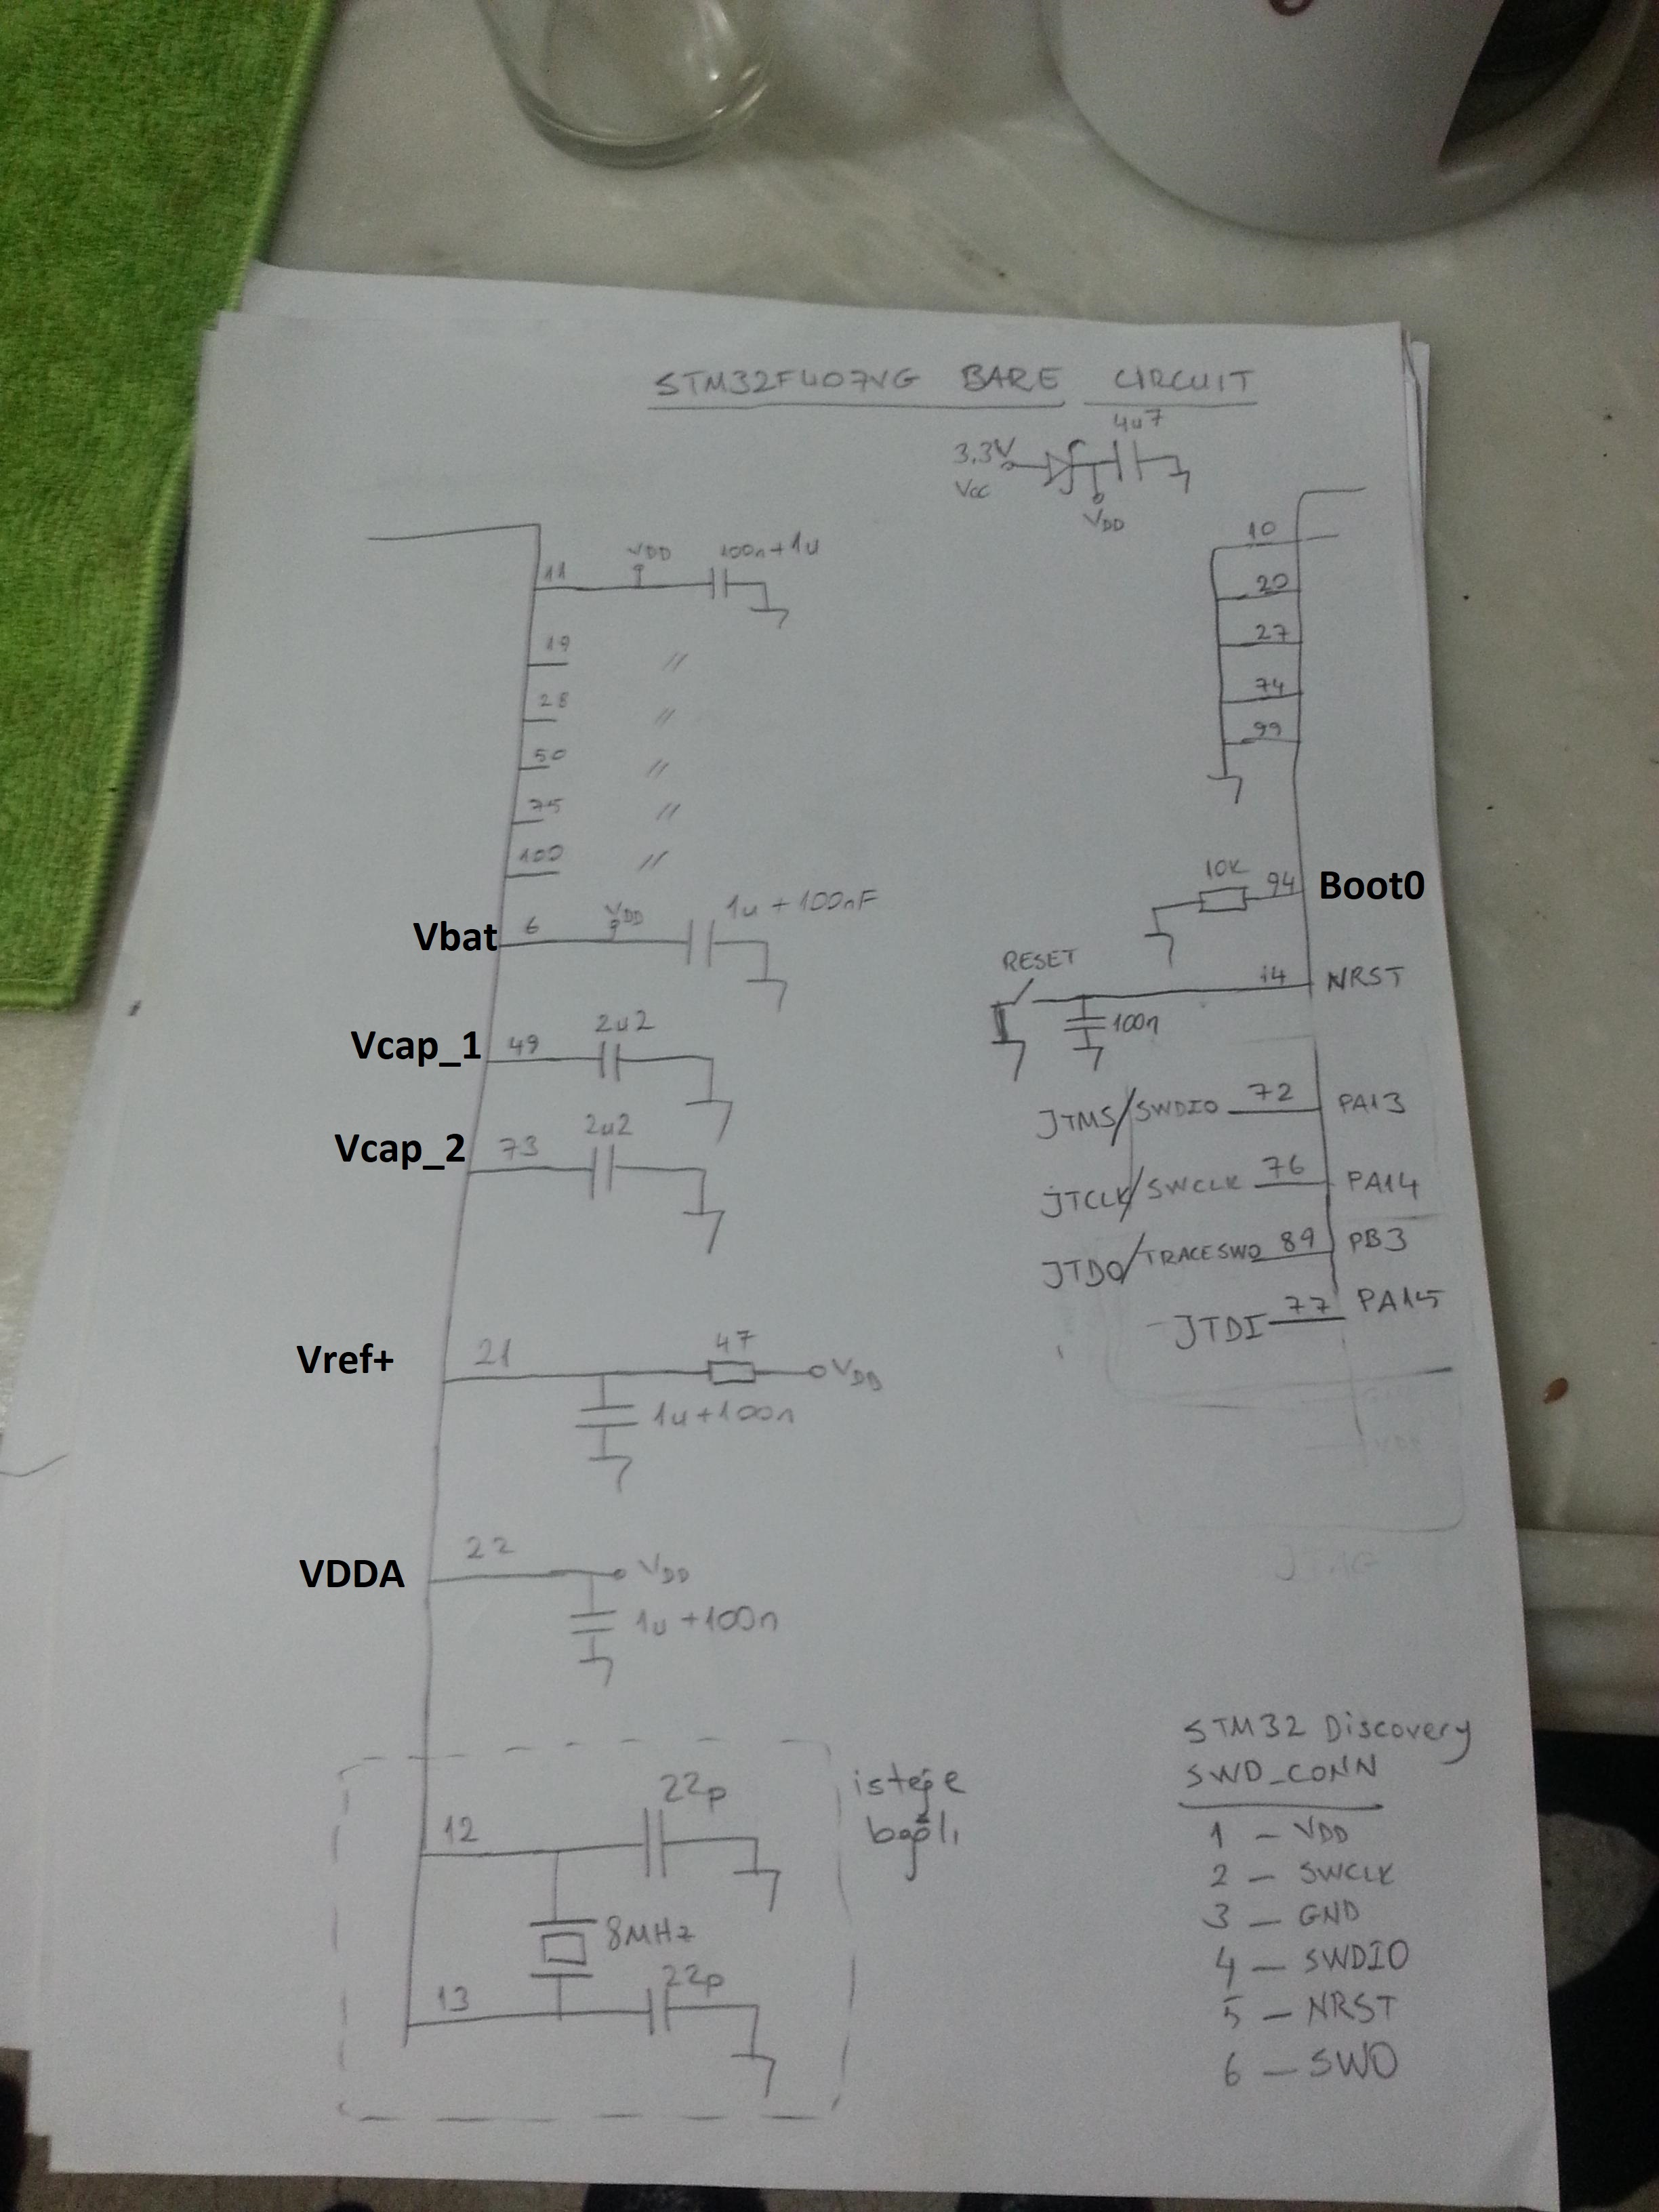 STM32F407VG BARE CIRCUIT
4u7
3.3V
Vcc
VDD
11 VDD 100n+1u
19 //
28 //
50 //
75 //
100 //
Vbat 6 VDD 1u + 100nF
Vcap_1 49 2u2
Vcap_2 73 2u2
Vref+ 21 47 VDD
1u+100n
VDDA 22 VDD
1u+100n
12 22p
8MHz
13 22p
isteğe
bağlı
10
20
27
74
99
10K 94 Boot0
RESET 14 NRST
100n
JTMS/SWDIO 72 PA13
JTCLK/SWCLK 76 PA14
JTDO/TRACESWO 89 PB3
JTDI 77 PA15
JTAG
STM32 Discovery
SWD_CONN
1 – VDD
2 – SWCLK
3 – GND
4 – SWDIO
5 – NRST
6 – SWO